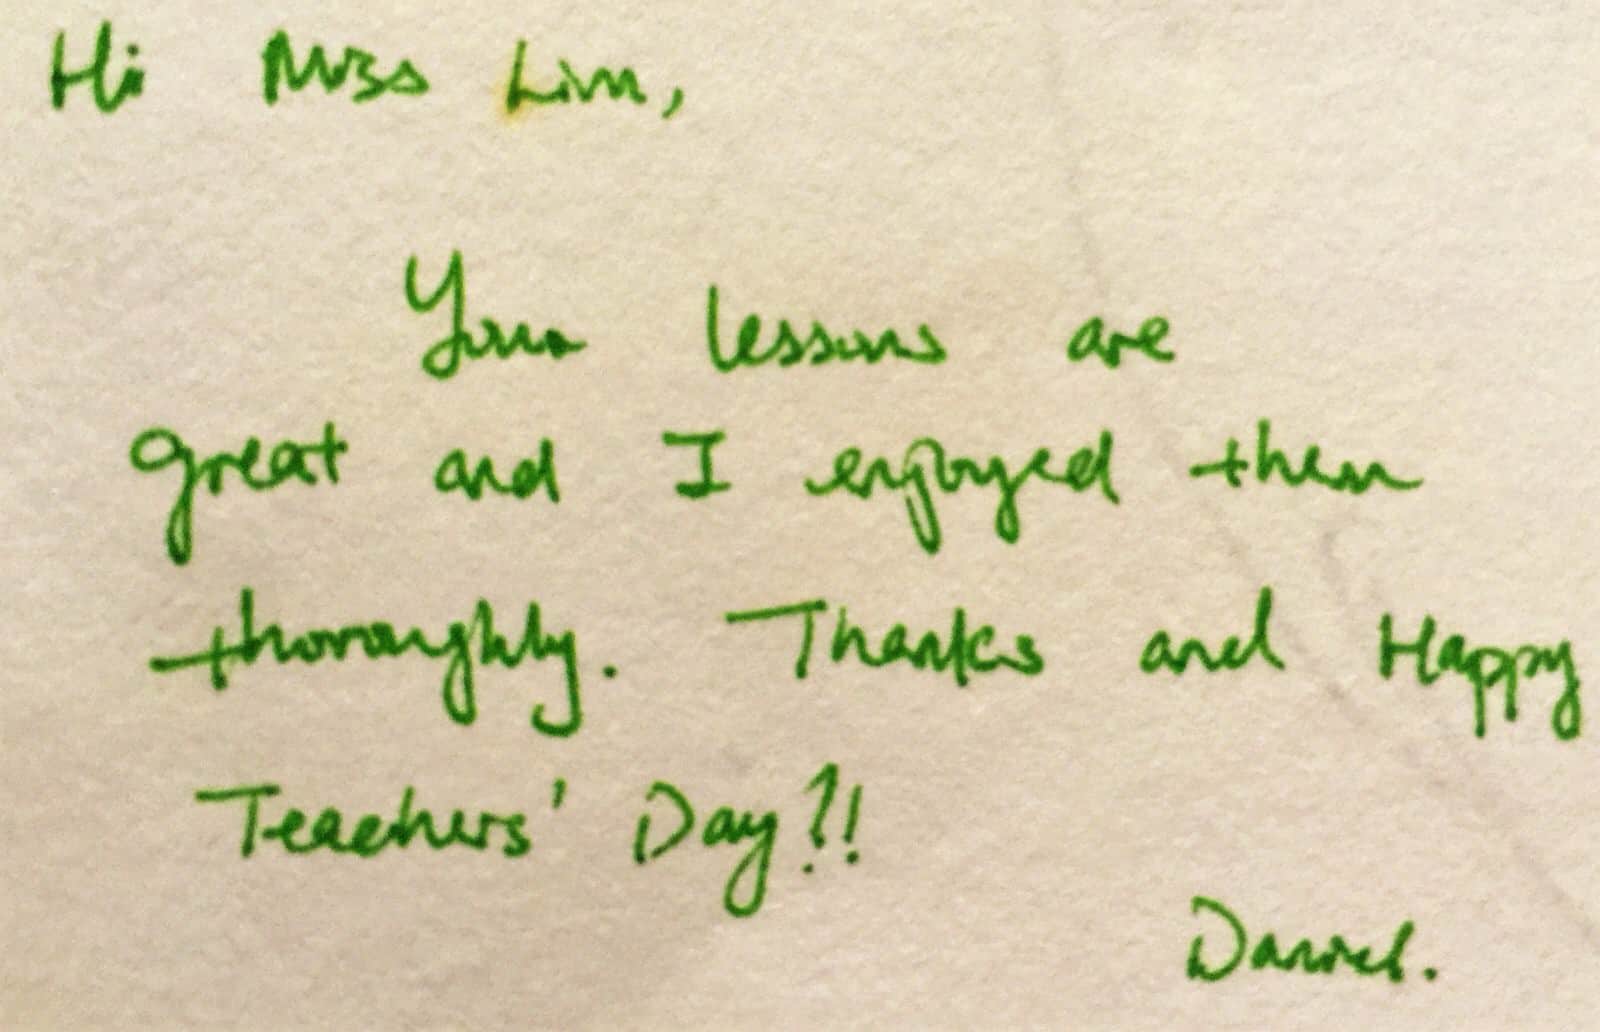 Hi Miss Lim,
Your lessons are
great and I enjoyed them
thoroughly. Thanks and Happy
Teachers' Day?!
Daniel.